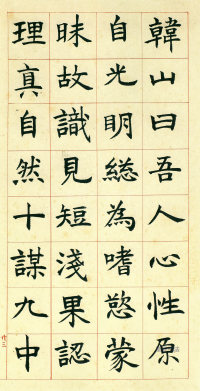 韓山曰吾人心性原
自光明緫為嗜慾蒙
昧故識見短淺果認
理真自然十謀九中